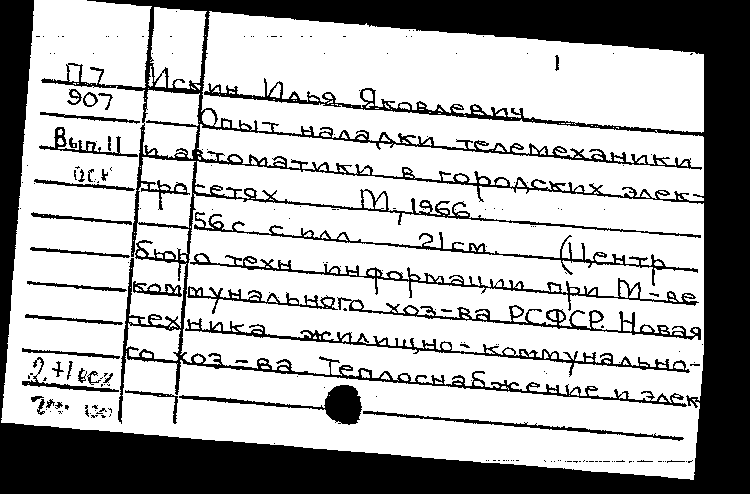 1
П7 Искин Илья Яковлевич.
907 Опыт наладки телемеханики
Вып.11 и автоматики в городских элек-
тросетях. М., 1966.
56 с. с илл. 21 см. (Центр.
бюро техн. информации при М-ве
коммунального хоз-ва РСФСР. Новая
техника жилищно-коммунально-
го хоз-ва. Теплоснабжение и элек
2.+1